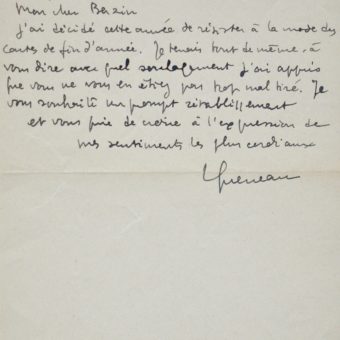 Mon cher Berzin
J'ai décidé cette année de résister à la mode des
cartes de fin d'année. Je tenais tout de même à
vous dire avec quel soulagement j'ai appris
que vous ne vous en êtiez pas trop mal tiré. Je
vous souhaite un prompt rétablissement
et vous prie de croire à l'expression de
mes sentiments les plus cordiaux
Queneau